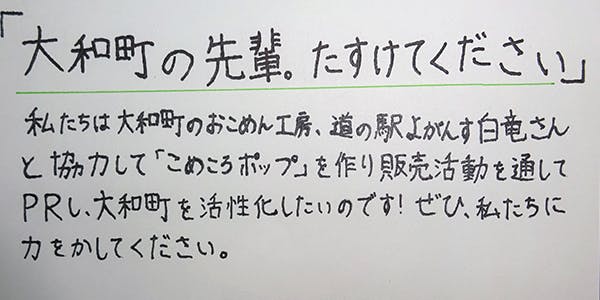 「大和町の先輩。たすけてください」
私たちは大和町のおこめん工房、道の駅よがんす白竜さん
と協力して「こめころポップ」を作り販売活動を通して
PRし、大和町を活性化したいのです！ぜひ、私たちに
力をかしてください。